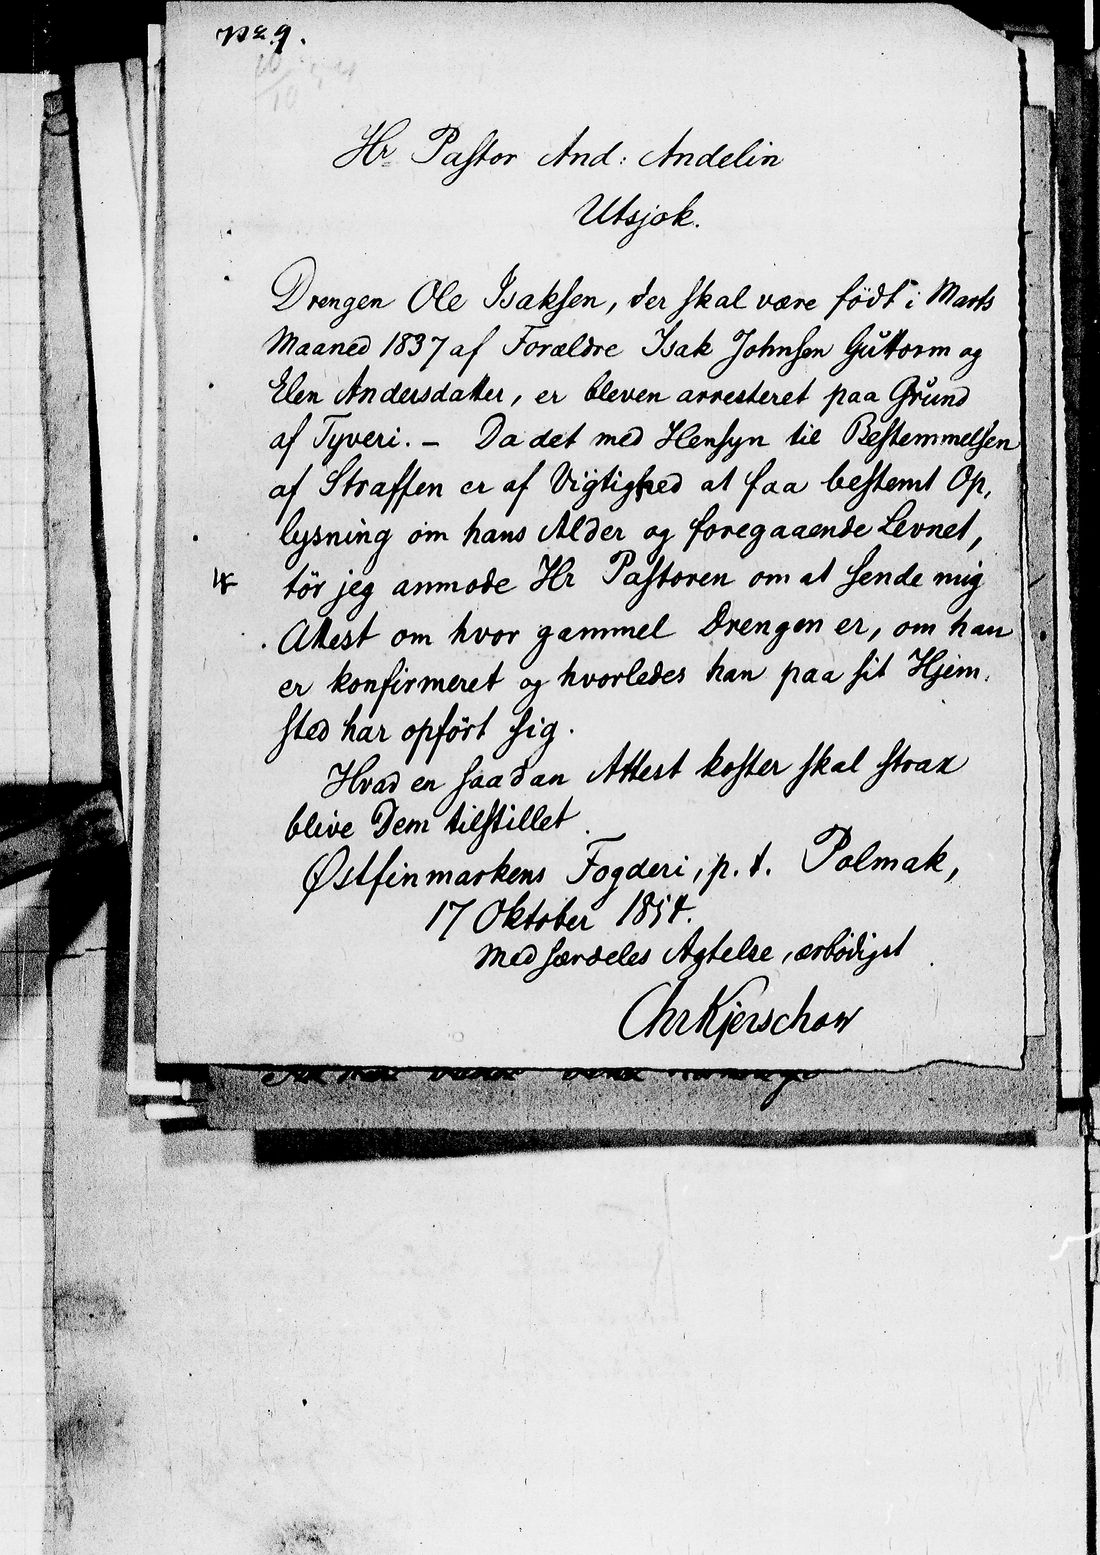 No 9.
Hr Pastor And: Andelin
Utsjok.
Drengen Ole Isaksen, der skal være födt i Marts
Maaned 1837 af Forældre Isak Johnsen Guttorm og
Elen Andersdatter, er bleven arresteret paa Grund
af Tyveri. – Da det med Hensyn til Bestemmelsen
af Straffen er af Vigtighed at faa bestemt Op,
lysning om hans Alder og foregaaende Levnet,
tör jeg anmode Hr Pastoren om at sende mig
Attest om hvor gammel Drengen er, om han
er konfirmeret og hvorledes han paa sit Hjem,
sted har opfört sig.
Hvad en saadan Attest koster skal strax
blive Dem tilstillet.
Østfinmarkens Fogderi, p. t. Polmak,
17 Oktober 1854.
Med særdeles Agtelse, ærbödigst
Chr Kjerschow